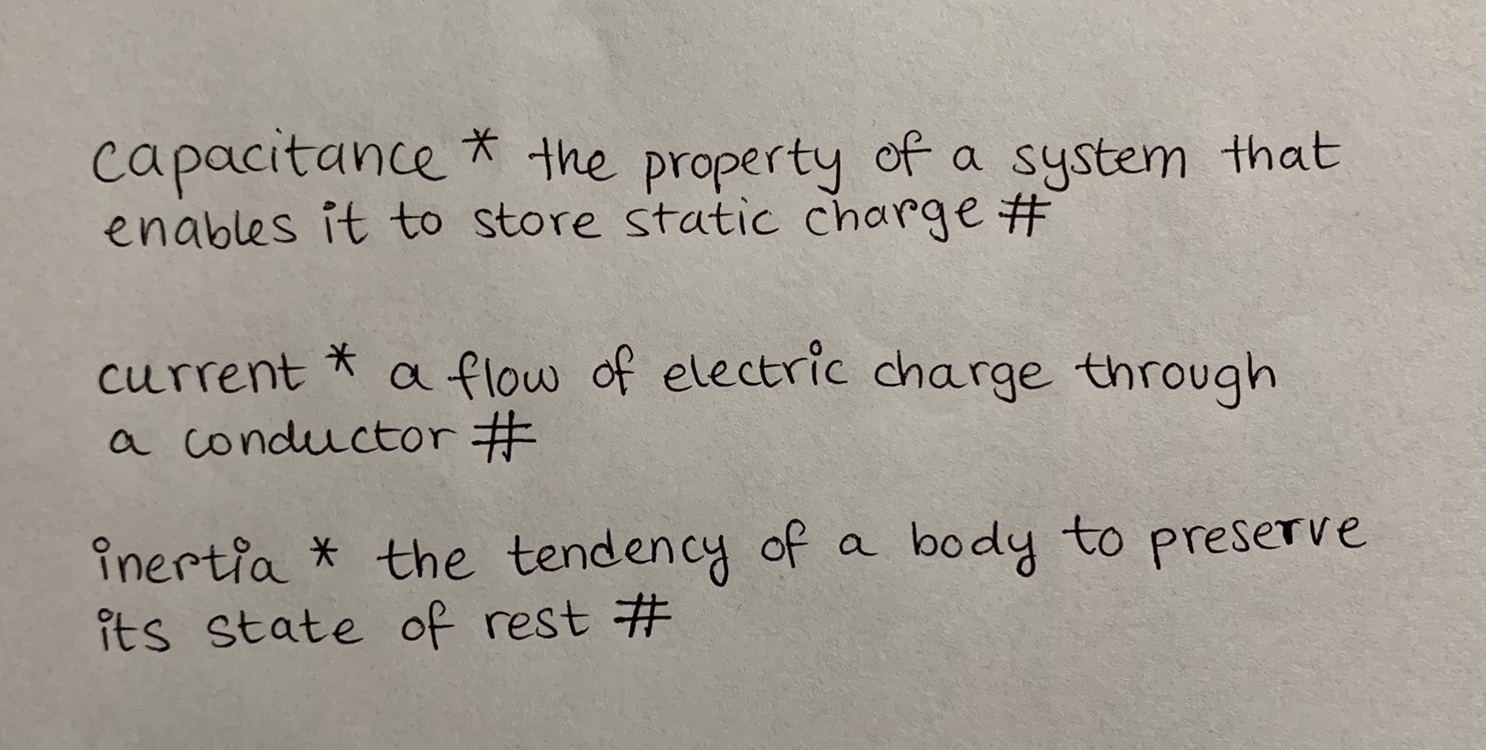 capacitance * the property of a system that
enables it to store static charge #
current * a flow of electric charge through
a conductor #
inertia * the tendency of a body to preserve
its state of rest #